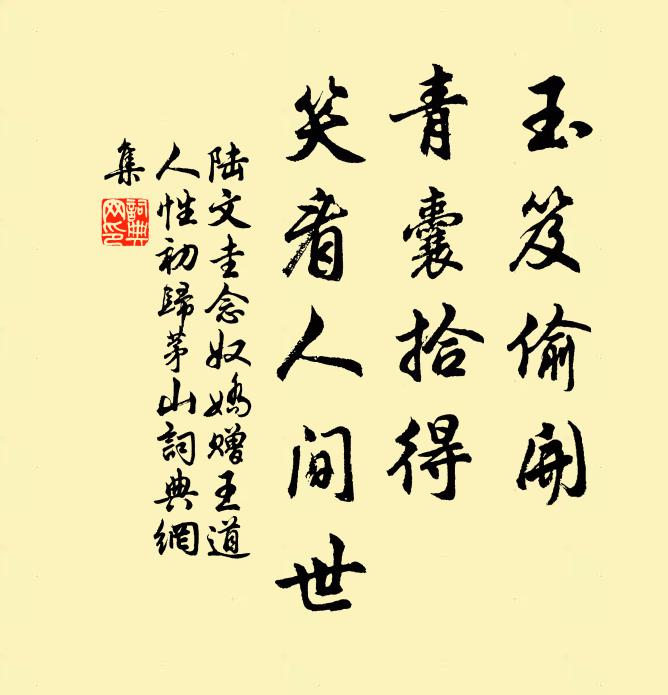 玉笈偷開
青囊拾得
笑看人间世
陆文圭念奴嬌赠王道
人性初歸茅山詞典網
集
詞典网印